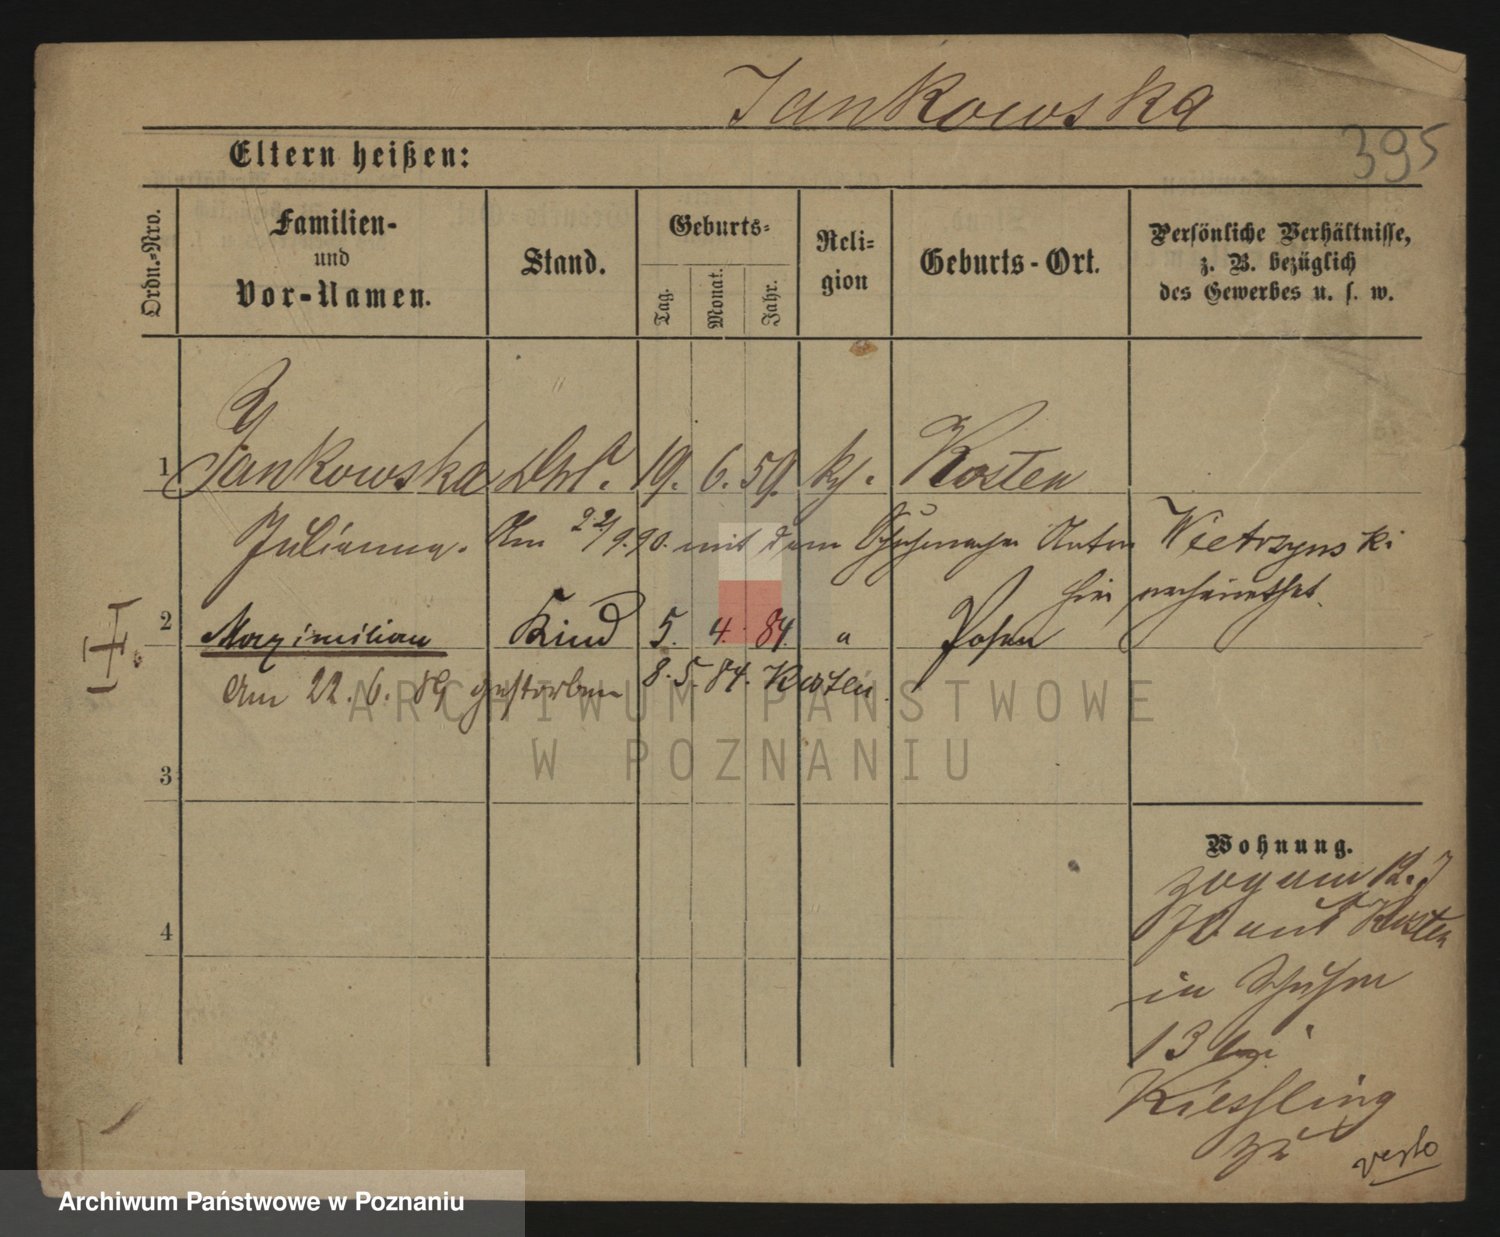 Jankowska
395
Eltern heißen:
Ordn.-Nro.
Familien-
und
Vor-Namen.
Stand.
Geburts-
Tag.
Monat.
Jahr.
Reli-
gion
Geburts-Ort.
Persönliche Verhältnisse,
z. B. bezüglich
des Gewerbes u. s. w.
1 Jankowska 19. 6. 59. Kosten
Julianna. Am 22/9.90. mit dem Schuhmacher Anton Wietrzynski
hier verheirathet.
2 Maximilian Kind 5. 4. 84. " Posen
Am 22. 6. 89 gestorben 8. 5. 84. Kosten
3
4
Wohnung.
zog am 12.
aus Kosten
in
13 bei
Kiessling
zu
verto
ARCHIWUM PAŃSTWOWE
W POZNANIU
Archiwum Państwowe w Poznaniu